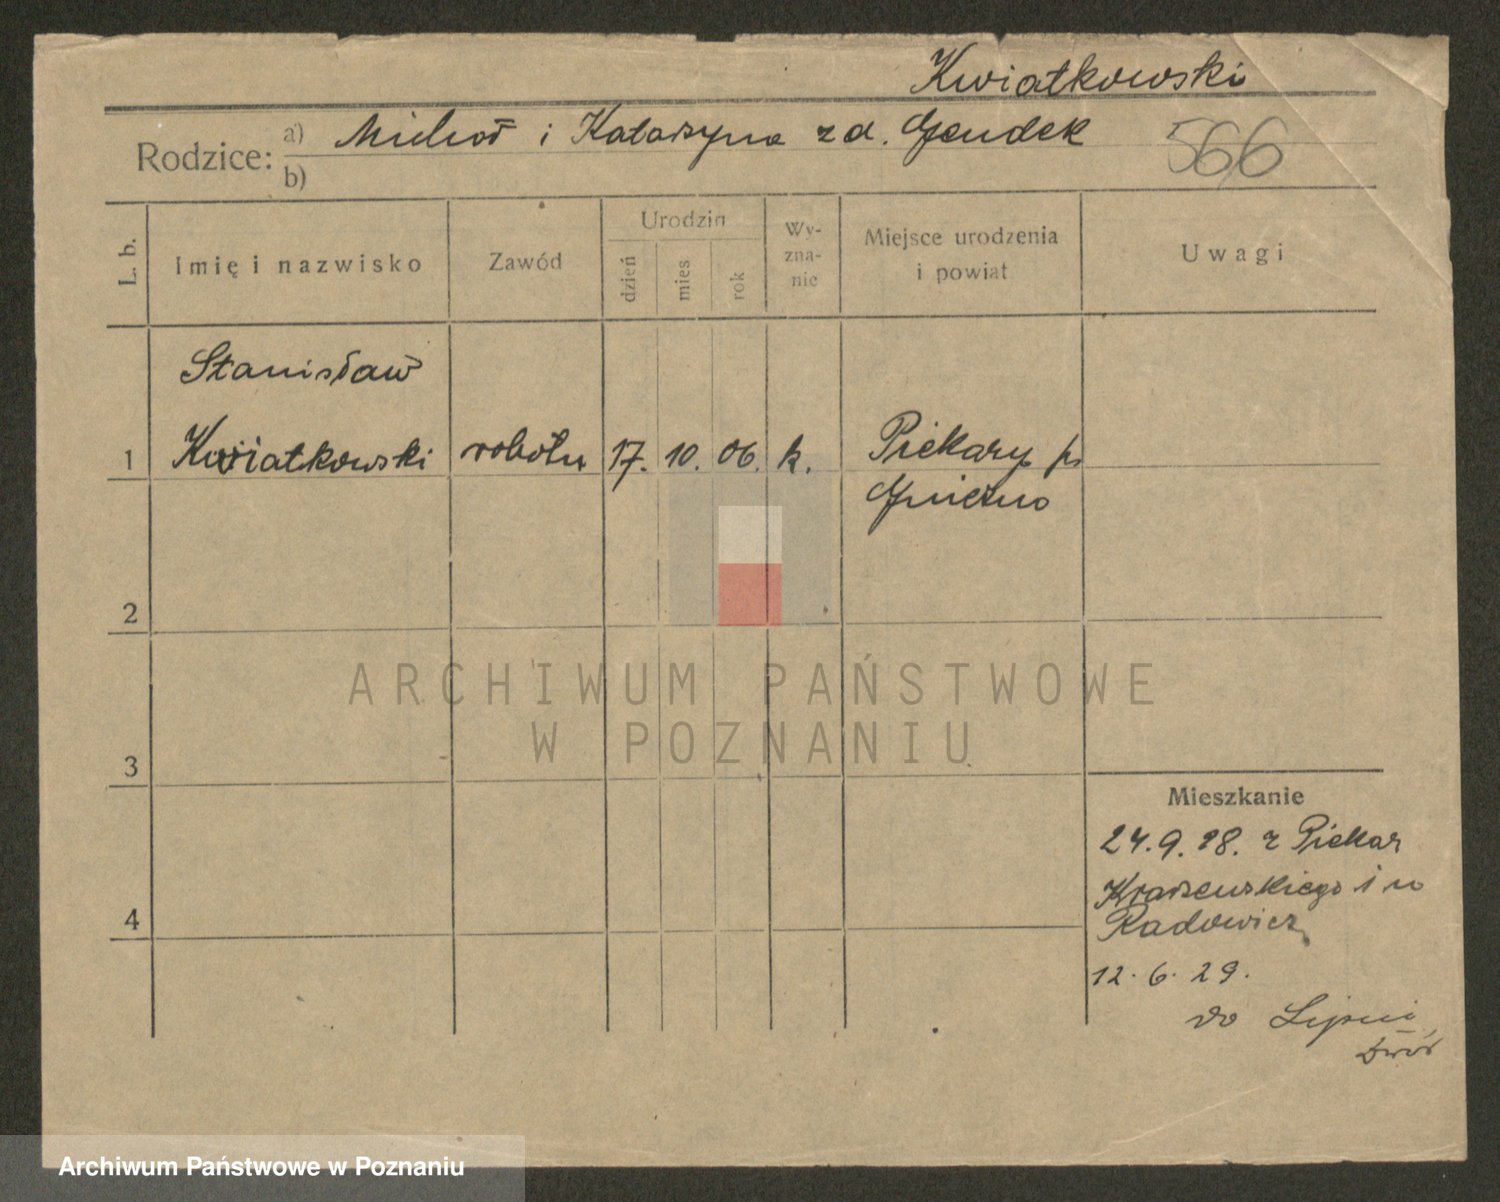 Kwiatkowski
Rodzice: a) Michał i Katarzyna z d. Gendek
b)
566
L. b.
Imię i nazwisko
Zawód
Urodzin
dzień
mies
rok
Wy-
zna-
nie
Miejsce urodzenia
i powiat
Uwagi
Stanisław
1 Kwiatkowski robotn 17. 10. 06. k. Piekary p
Gniezno
2
3
4
ARCHIWUM PAŃSTWOWE
W POZNANIU
Mieszkanie
24.9.28. z Piekar
Kraszewskiego 1 u
Radowicz
12.6.29.
do
Dwór
Archiwum Państwowe w Poznaniu